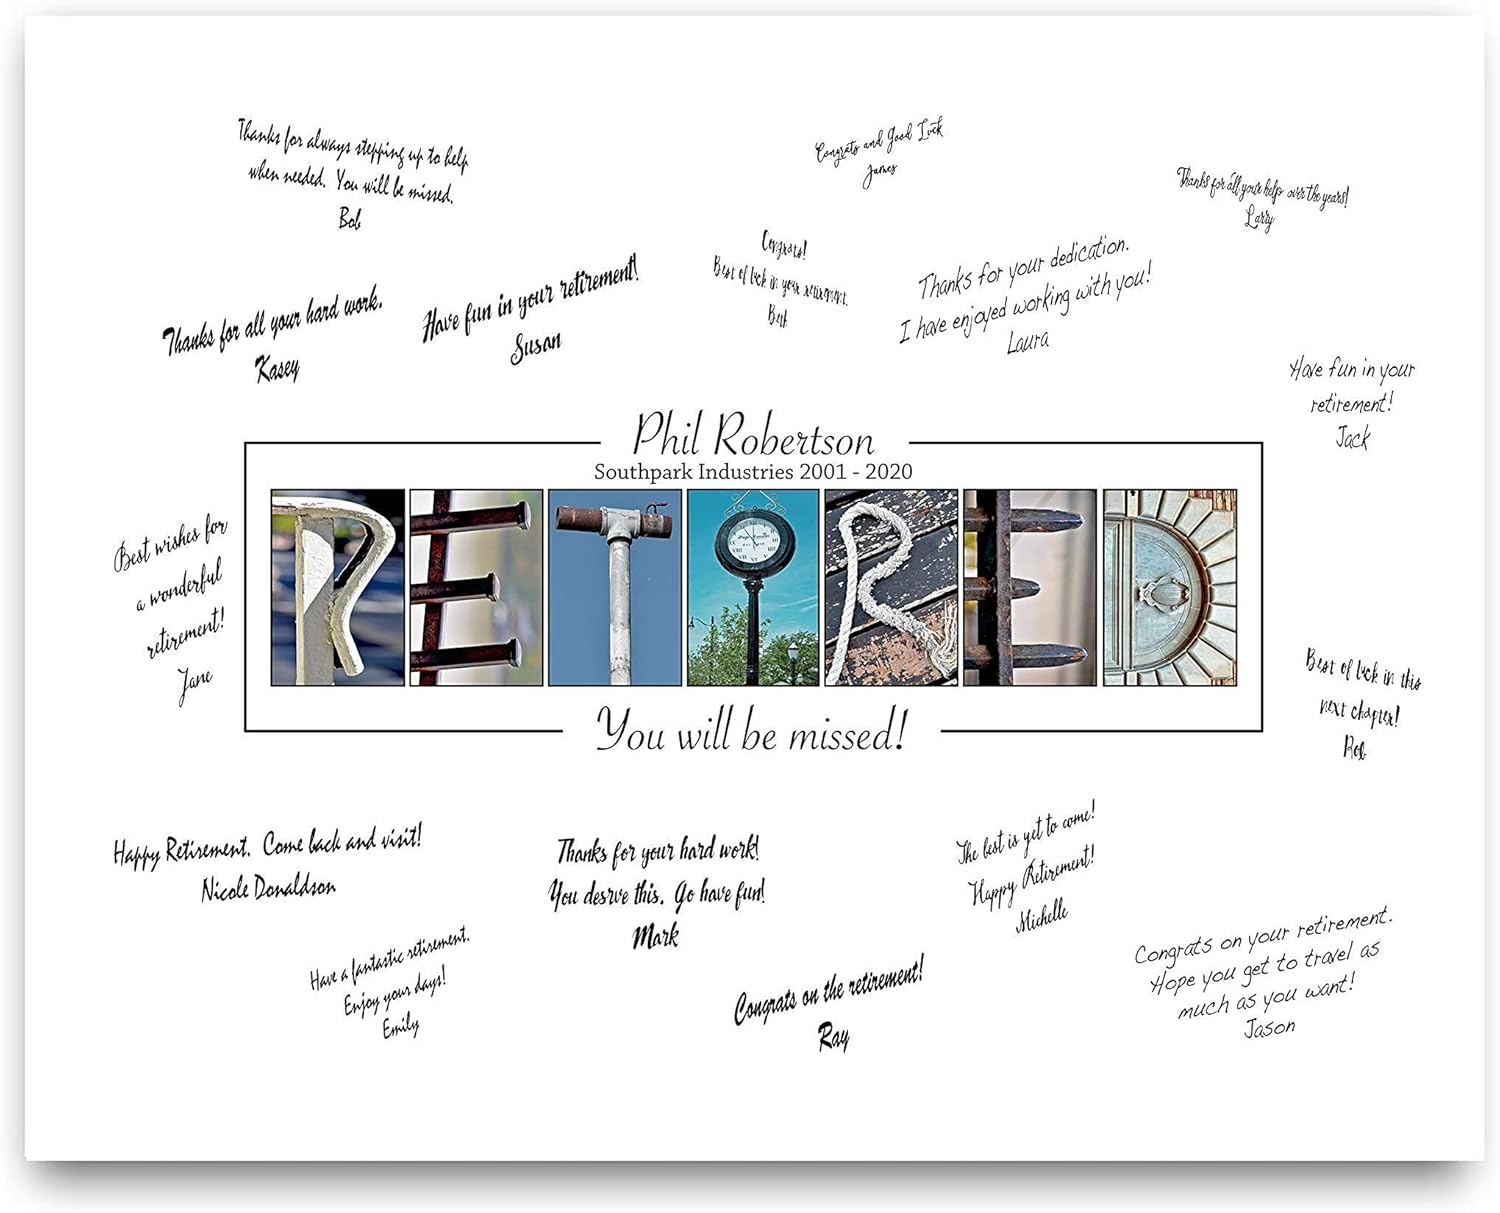 Thanks for always stepping up to help
when needed. You will be missed.
Bob
Congrats and Good Luck
James
Thanks for all your help over the years!
Larry
Thanks for all your hard work.
Kasey
Have fun in your retirement!
Susan
Congrats!
Best of luck in your retirement.
Beth
Thanks for your dedication.
I have enjoyed working with you!
Laura
Have fun in your
retirement!
Jack
Phil Robertson
Southpark Industries 2001 - 2020
RETIRED
You will be missed!
Best wishes for
a wonderful
retirement!
Jane
Best of luck in this
next chapter!
Rob
Happy Retirement. Come back and visit!
Nicole Donaldson
Thanks for your hard work!
You desrve this. Go have fun!
Mark
The best is yet to come!
Happy Retirement!
Michelle
Have a fantastic retirement.
Enjoy your days!
Emily
Congrats on the retirement!
Ray
Congrats on your retirement.
Hope you get to travel as
much as you want!
Jason